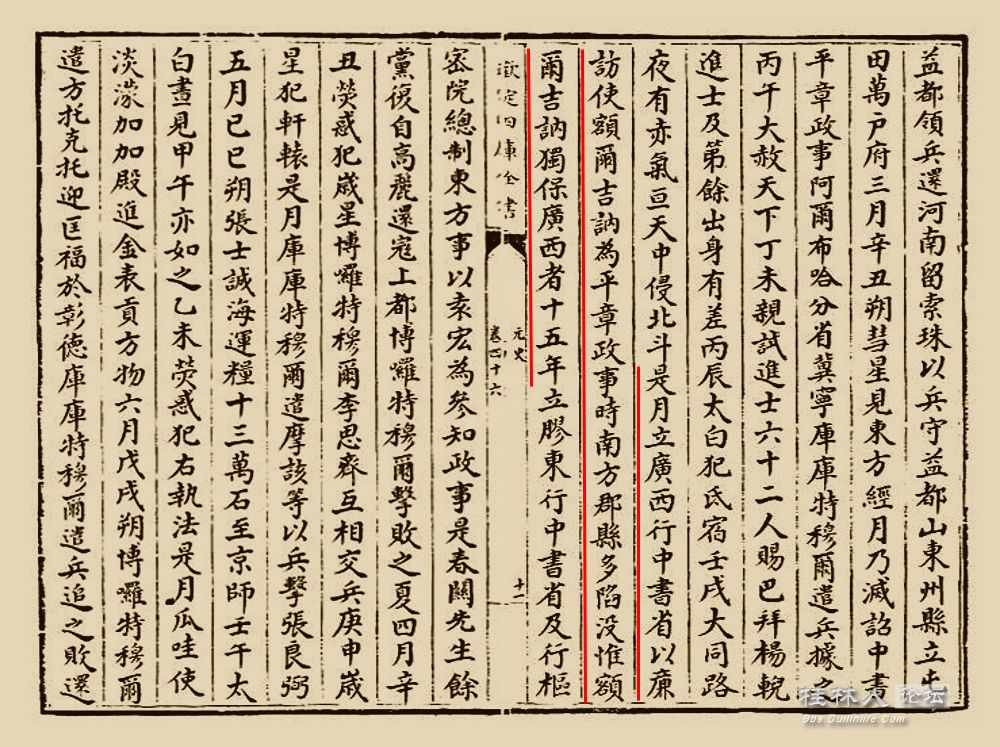 益都領兵還河南留索珠以兵守益都山東州縣立屯
田萬户府三月辛丑朔彗星見東方經月乃滅詔中書
平章政事阿爾布哈分省冀寧庫庫特穆爾遣兵據之
丙午大赦天下丁未親試進士六十二人賜巴拜楊輗
進士及第餘出身有差丙辰太白犯氐宿壬戌大同路
夜有赤氣亘天中侵北斗是月立廣西行中書省以廉
訪使額爾吉訥為平章政事時南方郡縣多陷沒惟額
爾吉訥獨保廣西者十五年立膠東行中書省及行樞
欽定四庫全書
元史
卷四十六
十一
密院總制東方事以袁宏為參知政事是春關先生餘
黨復自高麗還寇上都博囉特穆爾擊敗之夏四月辛
丑熒惑犯嵗星博囉特穆爾李思齊互相交兵庚申嵗
星犯軒轅是月庫庫特穆爾遣摩該等以兵擊張良弼
五月己巳朔張士誠海運糧十三萬石至京師壬午太
白晝見甲午亦如之乙未熒惑犯右執法是月瓜哇使
淡濛加加殿進金表貢方物六月戊戌朔博囉特穆爾
遣方托克托迎匡福於彰德庫庫特穆爾遣兵追之敗還
桂林人论坛
Bbs.Guilinlife.Com